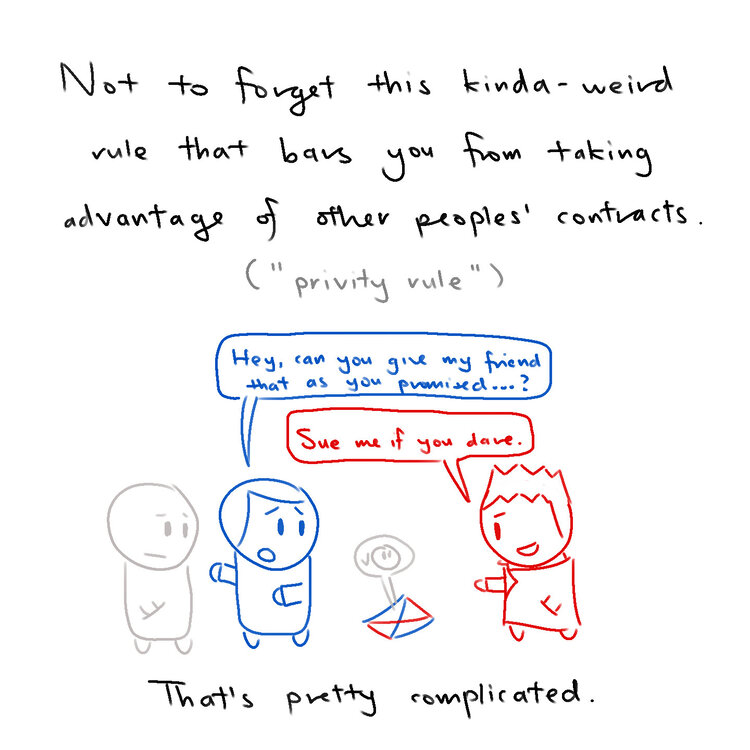 Not to forget this kinda-weird
rule that bars you from taking
advantage of other peoples' contracts.
("privity rule")
Hey, can you give my friend
that as you promised...?
Sue me if you dare.
That's pretty complicated.